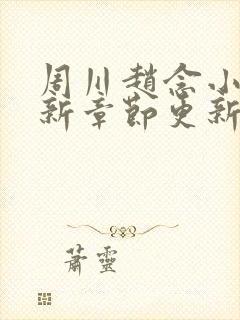 周川趙念小
新章節更新
蕭靈